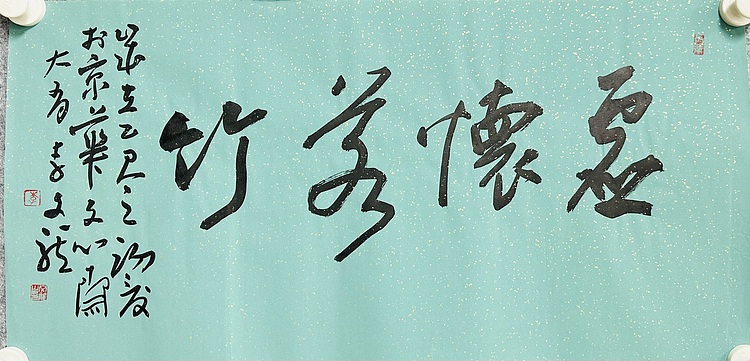 虚懷若竹
歲在乙巳之初夏
於京華文心閣
大眉李文龍